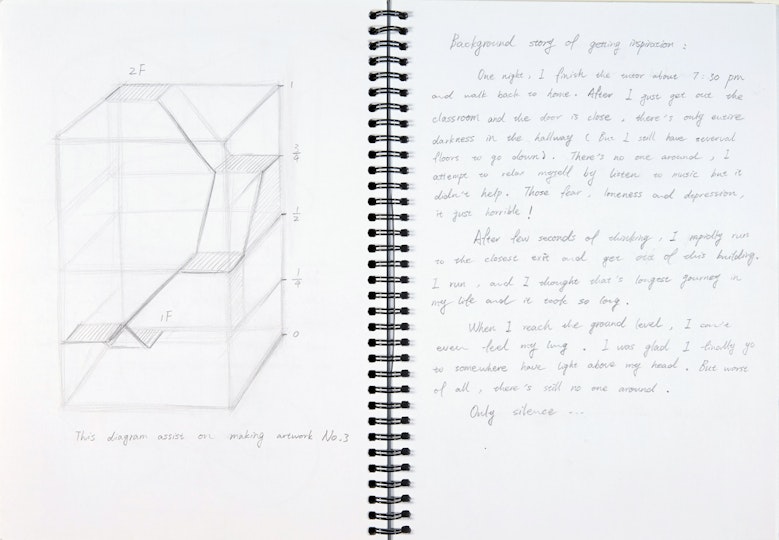 2F
1
3/4
1/2
1/4
0
1F
This diagram assist on making artwork No.3
Background story of getting inspiration :
One night, I finish the tutor about 7:30 pm
and walk back to home. After I just get out the
classroom and the door is close, there's only entire
darkness in the hallway ( But I still have several
floors to go down). There's no one around, I
attempt to relax myself by listen to music but it
didn't help. Those fear, loneness and depression,
it just horrible!
After few seconds of thinking, I rapidly run
to the closest exit and get out of this building.
I run, and I thought that's longest journey in
my life and it took so long.
When I reach the ground level, I can't
even feel my lung. I was glad I finally go
to somewhere have light above my head. But worst
of all, there's still no one around.
Only silence ...